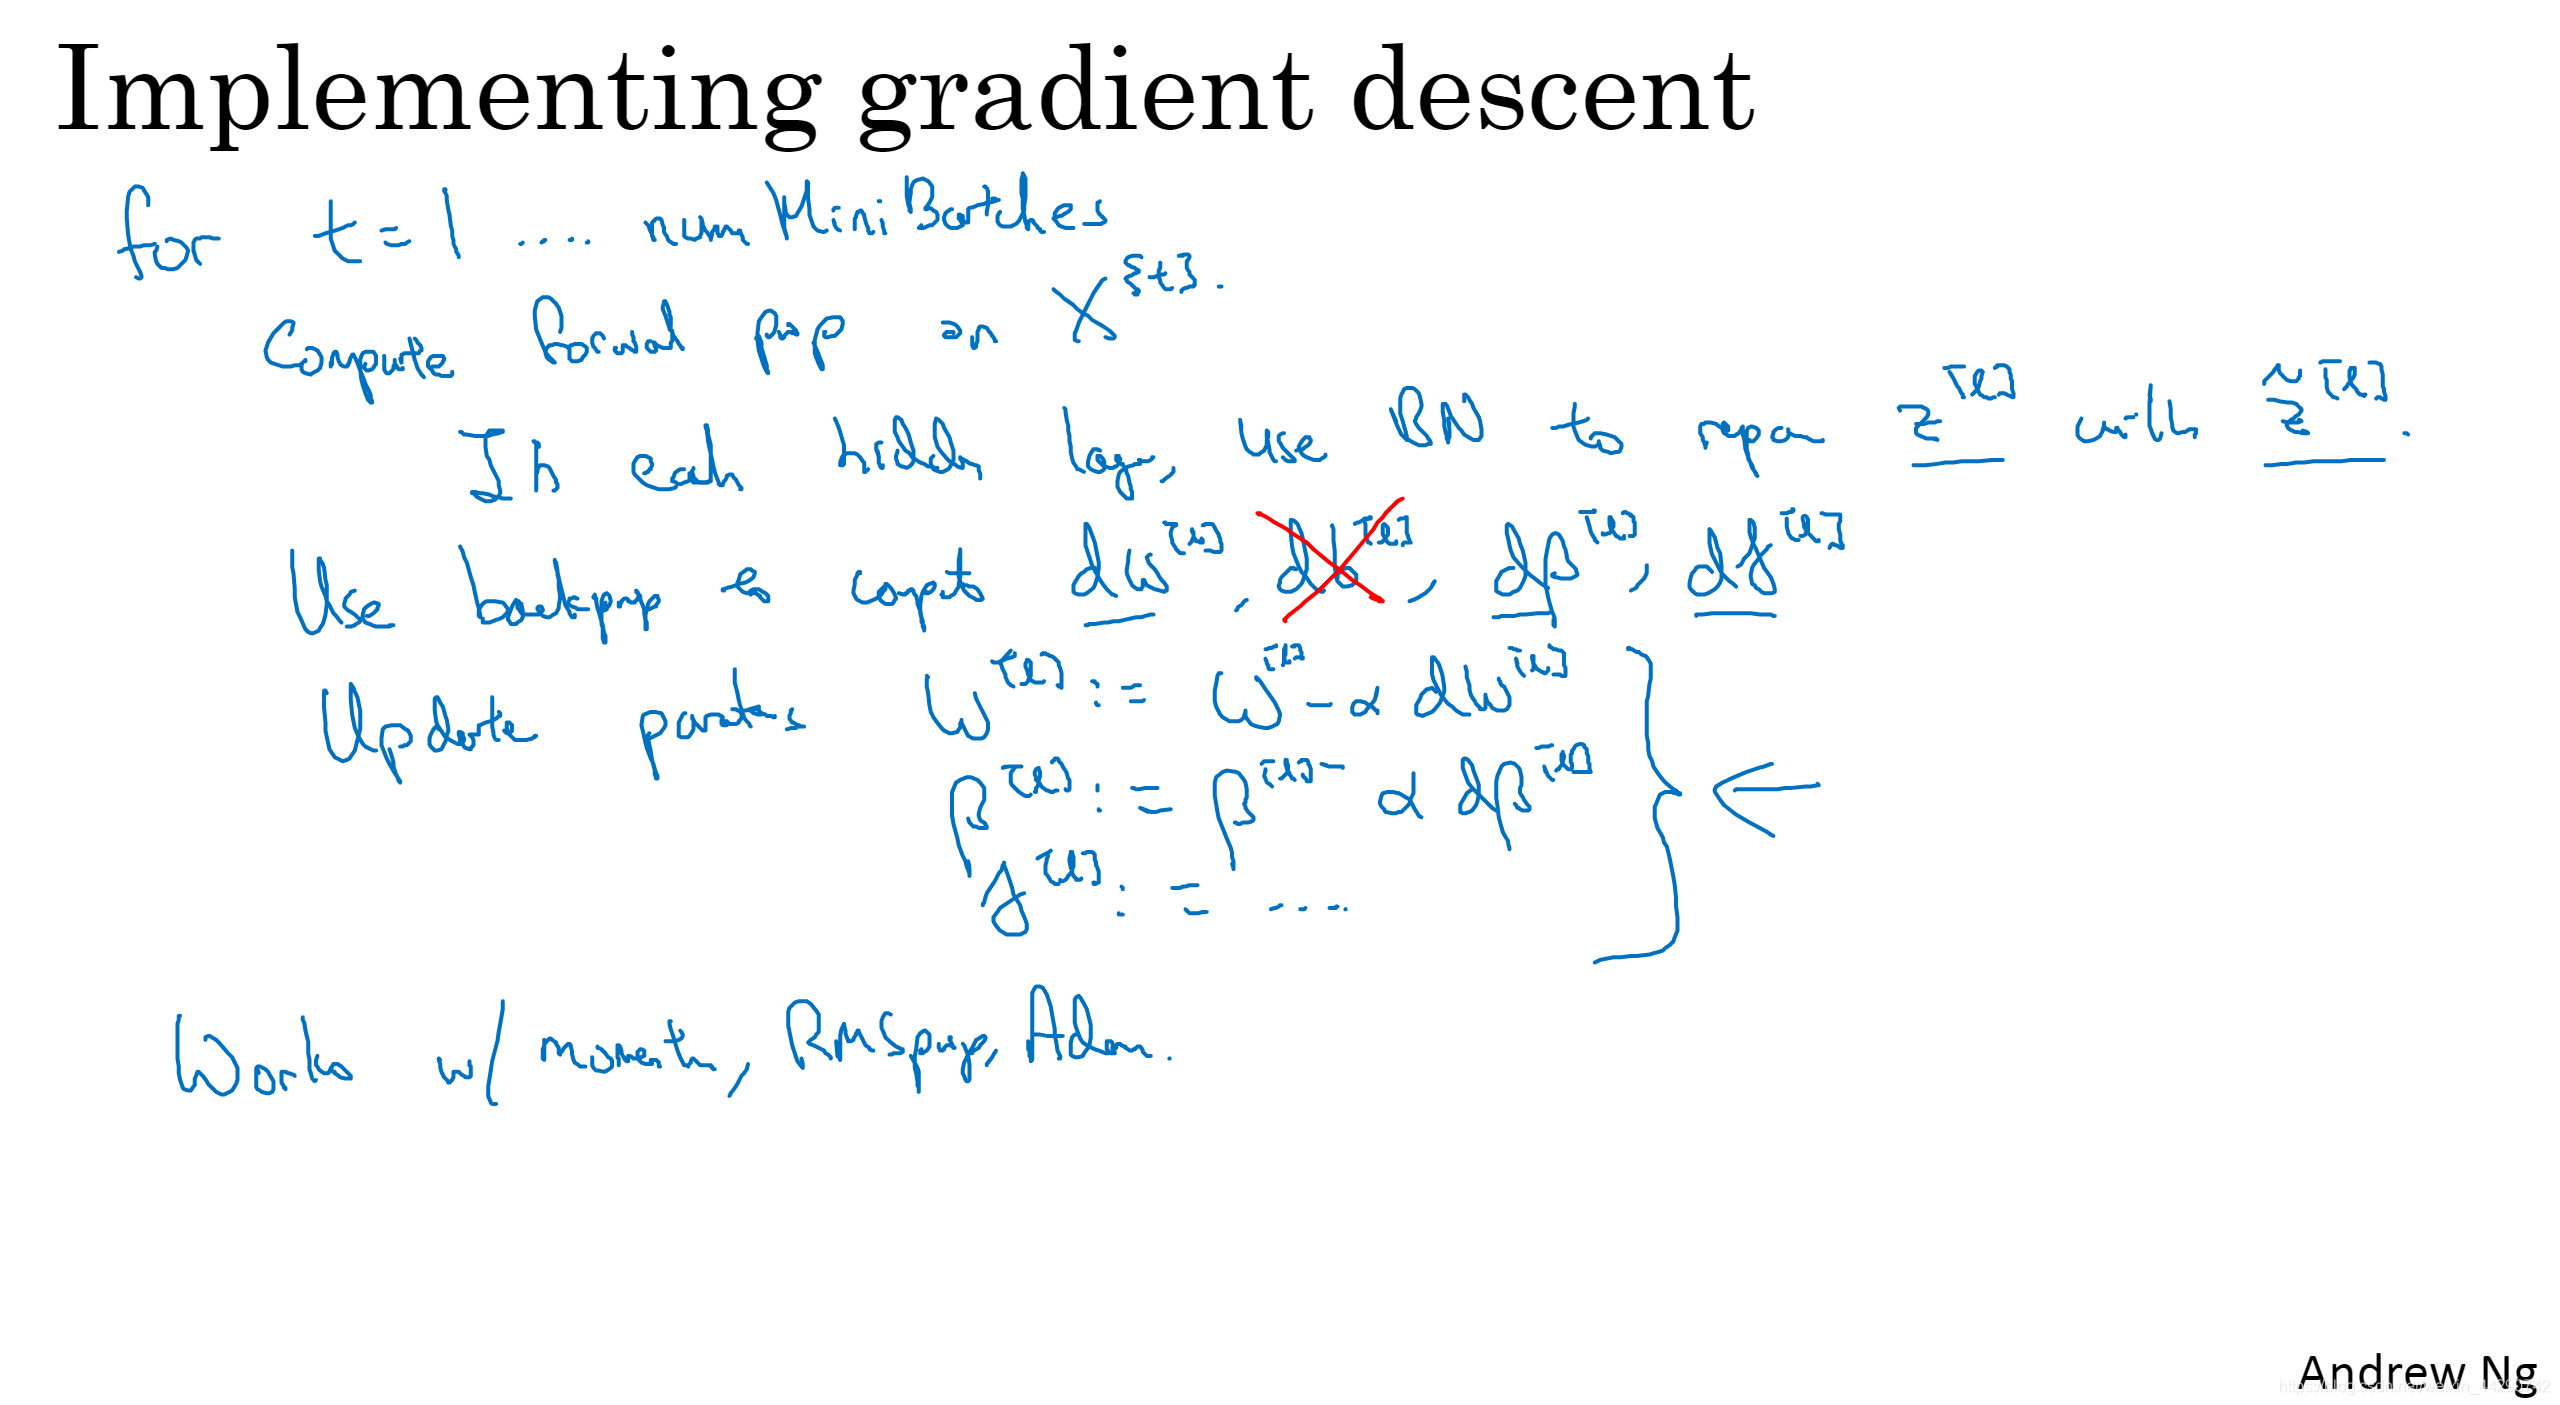 Implementing gradient descent
for t = 1 .... num Mini Batches
Compute forward prop on X^{t}.
In each hidden layer, use BN to repar z^[l] with z̃^[l].
Use backprop to compute dW^[l], db^[l], dβ^[l], dγ^[l]
Update parameters W^[l] := W^[l] - α dW^[l]
β^[l] := β^[l] - α dβ^[l]
γ^[l] := ....
Works w/ momentum, RMSprop, Adam.
Andrew Ng